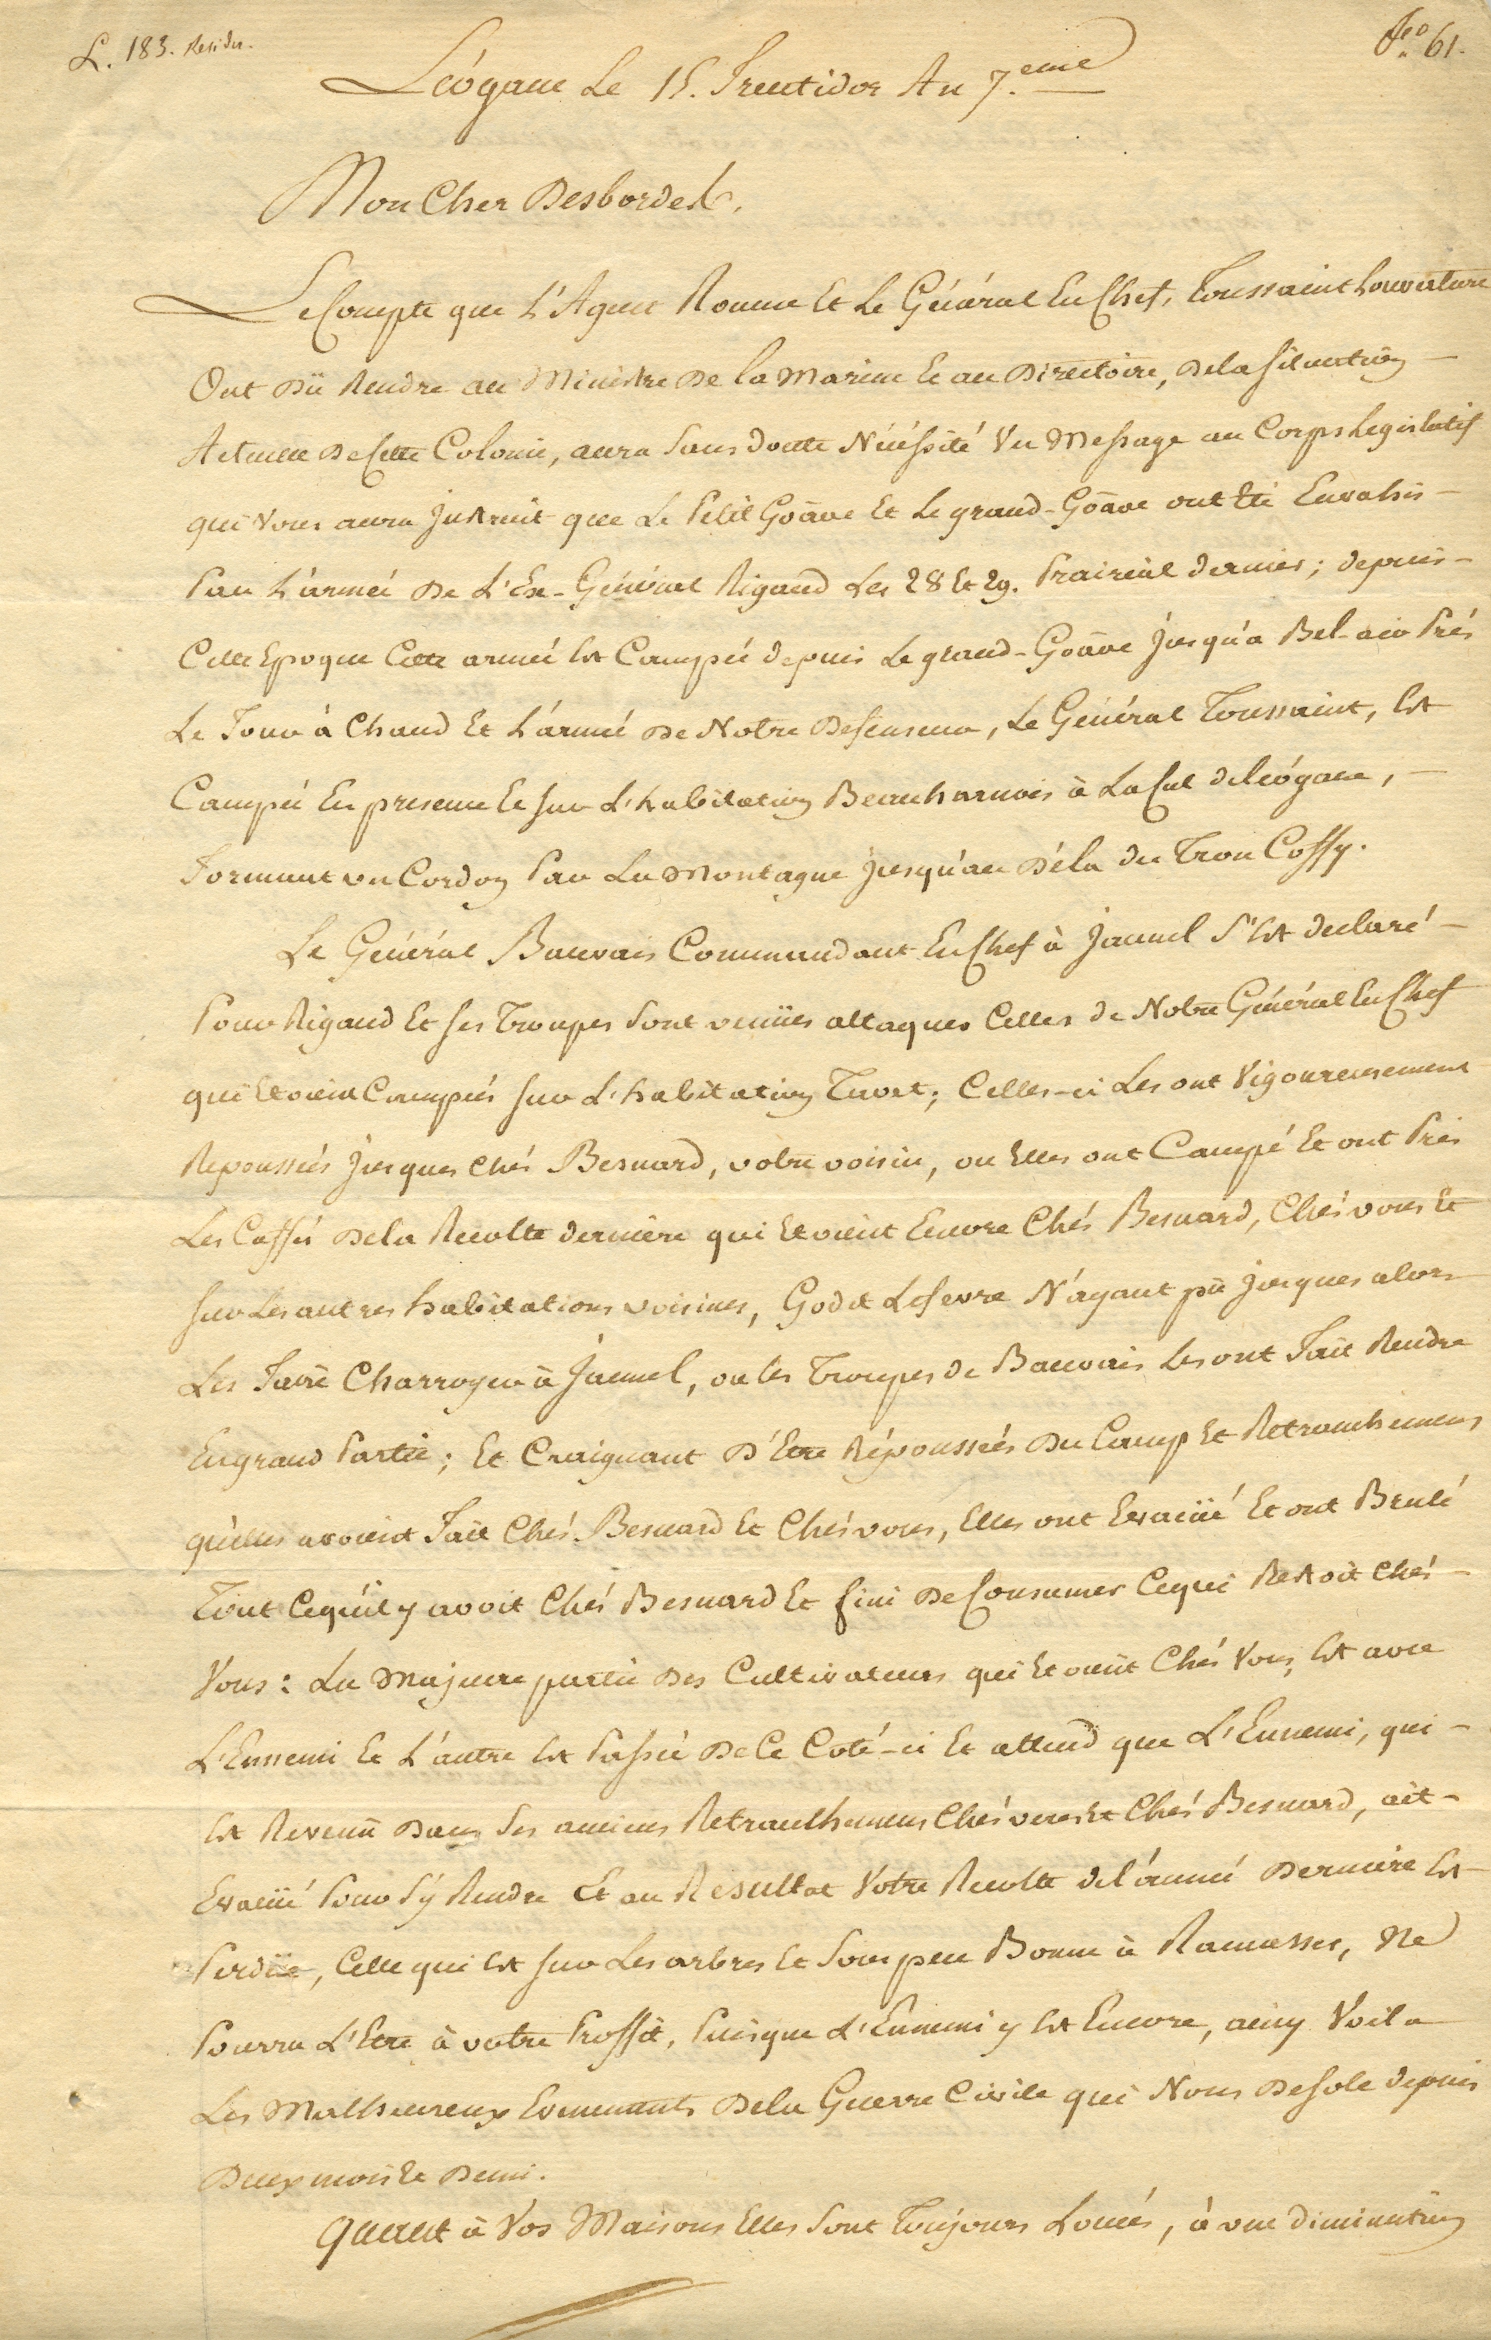 L. 183. Residu.
fo. 61.
Léogane Le 15. Fructidor An 7.eme
Mon Cher Desbordes.
Le Compte que L'Agent Roume Et Le Général En Chef, Toussaint Louverture
Ont dü Rendre au Ministre De la Marine Et au Directoire, De la Situation
Actuelle De Cette Colonie, aura Sans doutte Nécéssité Un Message au Corps Legislatif
qui Vous aura Instruit que Le Petit Goâve Et Le grand-Goâve ont Eté Envahis
Par L'armée De L'Ex-Général Rigaud Les 28 Et 29. Prairéal dernier; depuis
Cette Epoque Cette armée Est Campée depuis Le grand-Goâve jusqu'a Bel-air Prés
Le Four à Chaud Et L'armée De Notre Defenseur, Le Général Toussaint, Est
Campée En presence Et Sur L'habitation Beauharnois à La Cul de Léogane,
Formant un Cordon Par La Montagne jusqu'au Déla du Trou Coffy.
Le Général Bauvais Commandant En Chef à Jacmel S'Est declaré
Pour Rigaud Et Ses Troupes Sont venües attaquer Celles de Notre Général En Chef
qui Etoient Campées Sur L'habitation Tavet; Celles-ci Les ont Vigoureusement
Repoussées jusques Chés Besnard, votre voisin, ou Elles ont Campé Et ont Pris
Les Caffés De la Recolte derniere qui Etoient Encore Chés Besnard, Chés vous Et
Sur Les autres habitations voisines, Godet Lefevre N'ayant pû jusques alors
Les Faire Charroyer à Jacmel, ou les Troupes de Bauvais Les ont Fait Rendre
En grand Partie; Et Craignant D'Etre Répoussées Du Camp Et Retranchemens
qu'elles avoient Fait Chés Besnard Et Chés vous, Elles ont Evacüé Et ont Brulé
Tout Ce qu'il y avoit Chés Besnard Et fini De Consumer Ce qui Restoit Chés
Vous: La Majeure partie Des Cultivateurs qui Etoient Chés Vous, Est avec
L'Ennemi Et L'autre Est Passée De Ce Coté-ci Et attend que L'Ennemi, qui
Est Revenü Dans Ses anciens Retranchemens Chés vous Et Chés Besnard, ait
Evacüé Pour S'y Rendre Et au Résultat Votre Recolte de L'année Derniére Est
Perdüe, Celle qui Est Sur Les arbres Et Sous peu Bonne à Ramasser, Ne
Pourra L'Etre à votre Proffit, Puisque L'Ennemi y Est Encore, ainsy Voila
Les Malheureux Evenements De la Guerre Civile qui Nous Desole depuis
Deux mois Et Demi.
Quant à Vos Maisons Elles Sont Toujours Louées, à une diminution